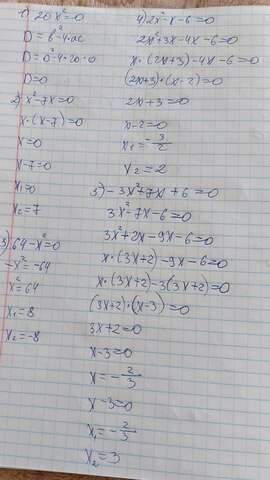 1) 20x²=0
D=b²-4·ac
D=0²-4·20·0
D=0
2) x²-7x=0
x·(x-7)=0
x=0
x-7=0
x₁=0
x₂=7
3) 64-x²=0
-x²=-64
x²=64
x₁=8
x₂=-8
4) 2x²-x-6=0
2x²+3x-4x-6=0
x·(2x+3)-4x-6=0
(2x+3)·(x-2)=0
2x+3=0
x-2=0
x₁=-3/2
x₂=2
5) -3x²+7x+6=0
3x²-7x-6=0
3x²+2x-9x-6=0
x·(3x+2)-9x-6=0
x·(3x+2)-3(3x+2)=0
(3x+2)·(x-3)=0
3x+2=0
x-3=0
x=-2/3
x-3=0
x₁=-2/3
x₂=3